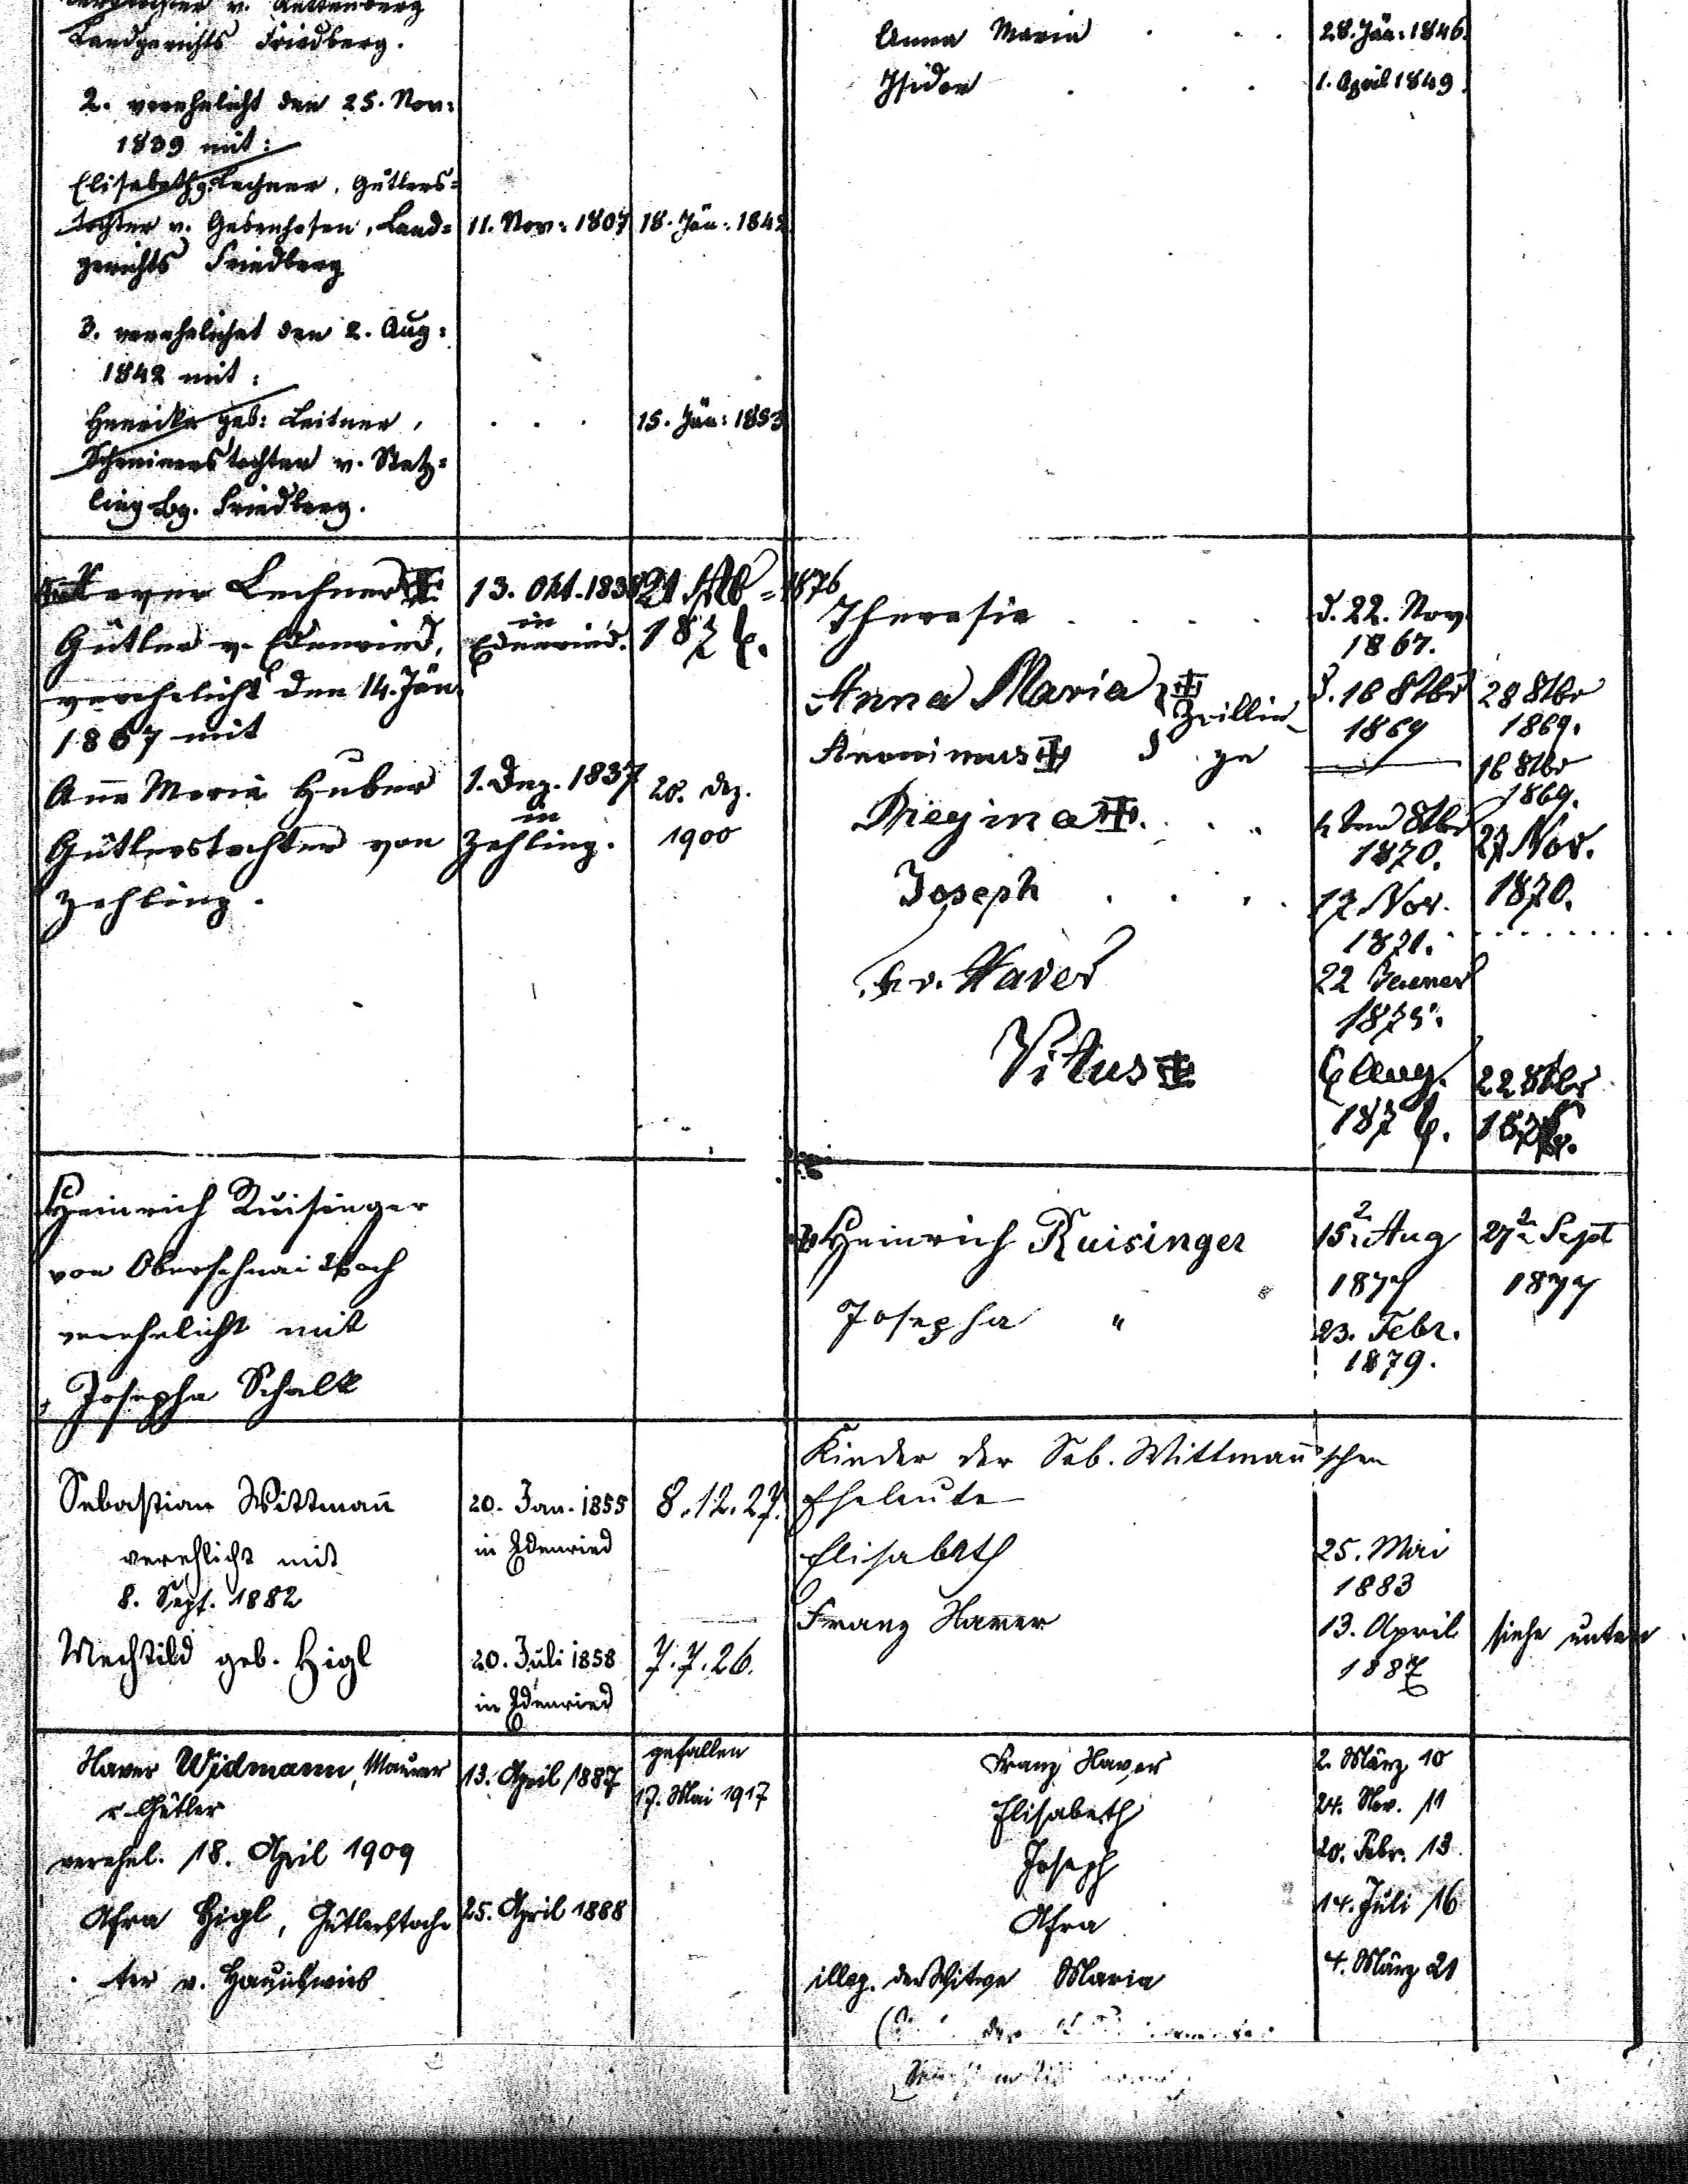 v. Rettenberg
Landgerichts Friedberg.
2. verehelicht den 25. Nov:
1839 mit:
Elisabeth g. Lechner, Gütlers=
tochter v. Gebenhofen, Land=
gerichts Friedberg
11. Nov: 1807
18. Jän: 1842
3. verehelichet den 2. Aug:
1842 mit:
Henrika geb: Leitner,
Schreinerstochter v. Stetz=
ling Lg. Friedberg.
. . .
15. Jän: 1853
Anna Maria . . .
28. Jän: 1846.
Isidor . . .
1. April 1849.
Xaver Lechner
Gütler v. Edenried,
verehelicht den 14. Jän.
1867 mit
13. Okt. 1838
in
Edenried.
1876
Ana Maria Huber
Gütlerstochter von
Zehling.
1. Dez. 1837
in
Zehling.
20. Dez.
1900
Theresia . . . .
d. 22. Nov.
1867.
Anna Maria } Zwillin-
d. 16 8tbr
1869
28 8tbr
1869.
Anonimus } ge
16 8tbr
1869.
Regina . . .
8tbr
1870.
27 Nov.
1870.
Joseph . . . .
17 Nov.
1871.
Fr. Xaver
22 Jenner
1875.
Vitus
6 Aug.
1876.
22 8tbr
1876.
Heinrich Ruisinger
von Oberschnaitbach
verehelicht mit
Josepha Schalk
Heinrich Ruisinger
15. Aug
1877
27 Sept
1877
Josepha "
23. Febr.
1879.
Sebastian Wittmann
verehlicht mit
8. Sept. 1882
Mechtild geb. Higl
20. Jan. 1855
in Edenried
8.12.27.
20. Juli 1858
in Edenried
7.7.26.
Kinder der Seb. Wittmann'schen
Eheleute
Elisabeth
25. Mai
1883
Franz Xaver
13. April
1887
siehe unten
Xaver Widmann, Maurer
u. Gütler
verehel. 18. April 1909
Afra Higl, Gütlerstoch-
ter v.
13. April 1887
gefallen
17. Mai 1917
25. April 1888
Franz Xaver
2. März 10
Elisabeth
24. Nov. 11
Joseph
20. Febr. 13.
Afra
14. Juli 16
illeg. der Witwe Maria
4. März 21